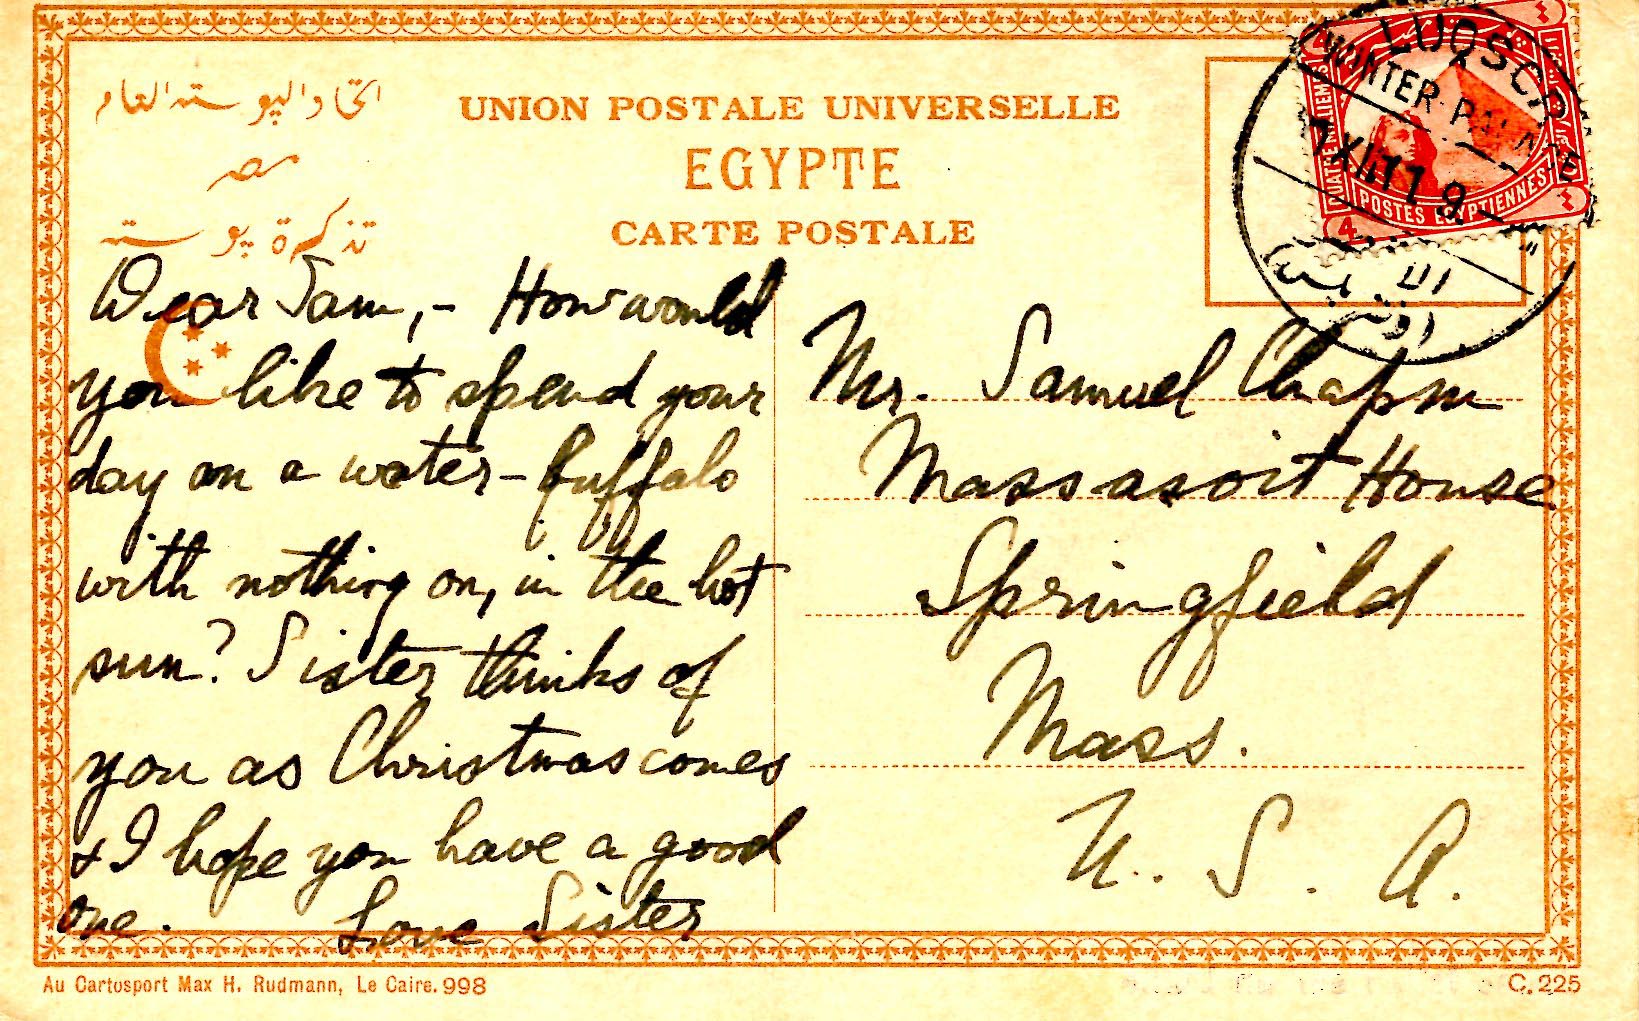 اتحاد البوسته العام
UNION POSTALE UNIVERSELLE
مصر
EGYPTE
تذكرة بوسته
CARTE POSTALE
LUQSOR
WINTER PALACE
QUATRE MILLIEMES
POSTES EGYPTIENNES
4
٤
٤
Dear Sam, - How would
you like to spend your
day on a water-buffalo
with nothing on, in the hot
sun? Sister thinks of
you as Christmas comes
& I hope you have a good
one. Love Sister
Mr. Samuel Chapin
Massasoit House
Springfield
Mass.
U. S. A.
Au Cartosport Max H. Rudmann, Le Caire. 998
C. 225